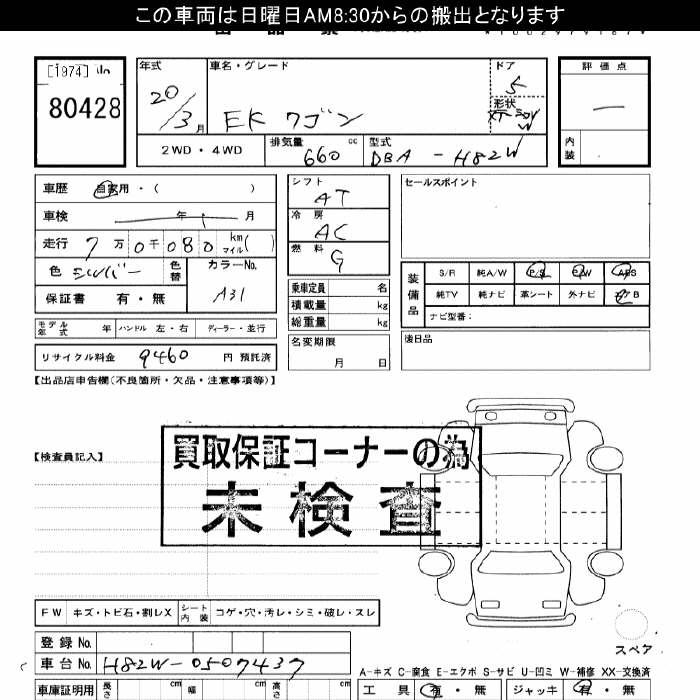 この車両は日曜日AM8:30からの搬出となります
[1974]
80428
年式
20/3月
車名・グレード
EKワゴン
ドア
5
形状
評価点
―
内装
2WD・4WD
排気量 cc
660
型式
DBA - H82W
車歴 自家用・( )
車検 年 月
走行 7万0千080 km マイル( )
色 シルバー 色替
カラーNo.
A31
保証書 有・無
シフト
AT
冷房
AC
燃料
G
乗車定員 名
積載量 kg
総重量 kg
名変期限
月 日
セールスポイント
装備品
S/R 純A/W P/S P/W ABS
純TV 純ナビ 革シート 外ナビ エアB
ナビ型番:
後日品
モデル年式 年 ハンドル 左・右 ディーラー・並行
リサイクル料金 9460 円 預託済
【出品店申告欄(不良箇所・欠品・注意事項等)】
【検査員記入】
買取保証コーナーの為
未検査
FW キズ・トビ石・割レX シート内装 コゲ・穴・汚レ・シミ・破レ・スレ
スペア
登録No.
車台No. H82W-0507437
A-キズ C-腐食 E-エクボ S-サビ U-凹ミ W-補修 XX-交換済
車庫証明用 長さ cm 幅 cm 高さ cm
工具 有・無 ジャッキ 有・無